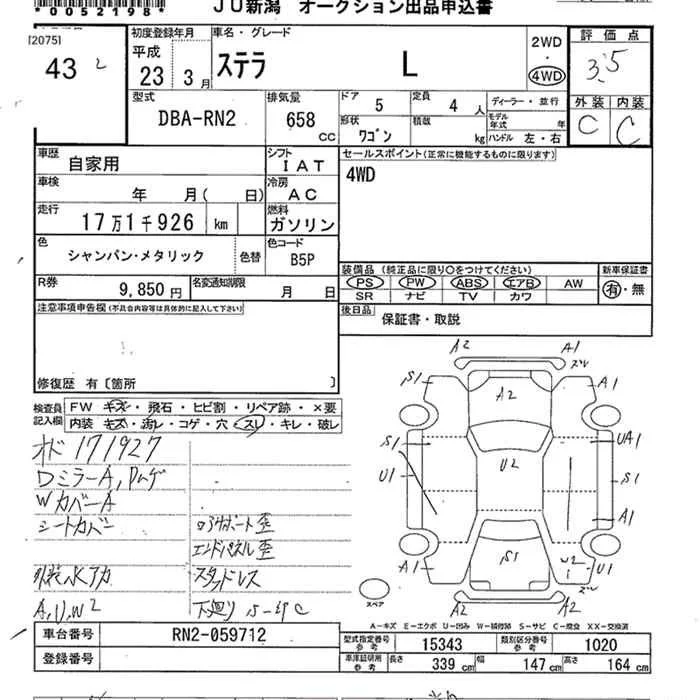 *0052198*
JU新潟 オークション出品申込書
[2075]
43 2
初度登録年月
平成
23 3月
車名・グレード
ステラ L
2WD
・
4WD
評価点
3.5
外装 内装
C C
型式
DBA-RN2
排気量
658 CC
ドア 5
定員 4 人
形状 ワゴン
積載 kg
ディーラー・並行
モデル年式 年
ハンドル 左・右
車歴 自家用
シフト IAT
車検 年 月( 日)
冷房 AC
走行 17万1千926 km
燃料 ガソリン
色 シャンパン・メタリック 色替
色コード B5P
R券 9,850円
名変通知期限 月 日
セールスポイント(正常に機能するものに限ります)
4WD
装備品(純正品に限り○をつけてください)
PS PW ABS エアB AW
SR ナビ TV カワ
新車保証書
有・無
後日品 保証書・取説
注意事項申告欄(不具合内容等は具体的に記入して下さい)
修復歴 有〔箇所 〕
検査員記入欄
FW キズ・飛石・ヒビ割・リペア跡・×要
内装 キズ・汚レ・コゲ・穴・スレ・キレ・破レ
オド171927
DミラーA,Pムゲ
WカバーA
シートカバー
外装水アカ
A,U,W2
コアサポート歪
エンドパネル歪
スタッドレス
下廻りS-錆C
A2 A1 ズレ
S1 A2 A1
S1 UA1
U1 U2 S1
A1
S1 W2
A1 U1
A2 A2 ズレ
スペア
A-キズ E-エクボ U-凹み W-補修跡 S-サビ C-腐食 XX-交換済
車台番号 RN2-059712
登録番号
型式指定番号 参考 15343
類別区分番号 参考 1020
車庫証明用 参考 長さ 339 cm 幅 147 cm 高さ 164 cm